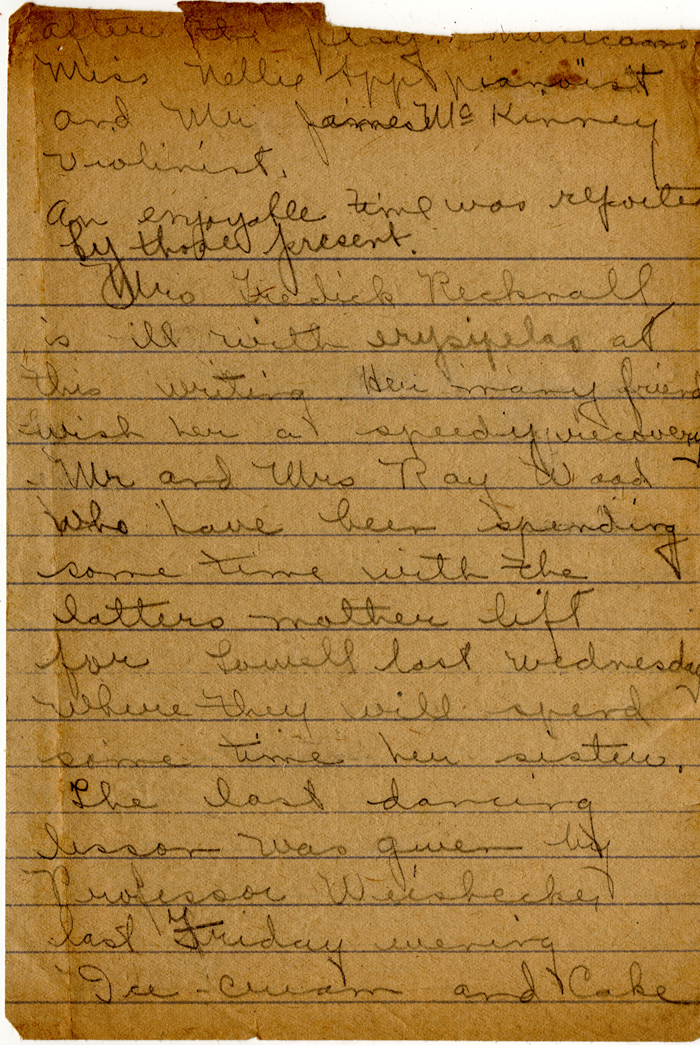 after the play. musicans
Miss Nellie App pianoist
and Mr James Mc Kinney
Violinist.
An enjoyable time was reported
by those present.
Mrs Fredick Recknall
is ill with erysipelas at
this writing. Her many friend
wish her a speedy recovery
Mr and Mrs Ray Wood
who have been spending
some time with the
latters mother left
for Lowell last wednesday
Where they will spend
some time her sister.
The last dancing
lesson was given by
Professor Weisbecker
last Friday evening
Ice-cream and Cake